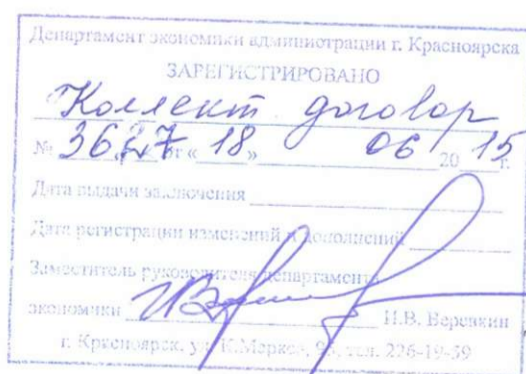 Департамент экономики администрации г. Красноярска
ЗАРЕГИСТРИРОВАНО
Коллект договор
№ 3627 от « 18 » 06 20 15 г.
Дата выдачи заключения
Дата регистрации изменений и дополнений
Заместитель руководителя департамента
экономики И.В. Веревкин
г. Красноярск, ул. К.Маркса, 95, тел. 226-19-59